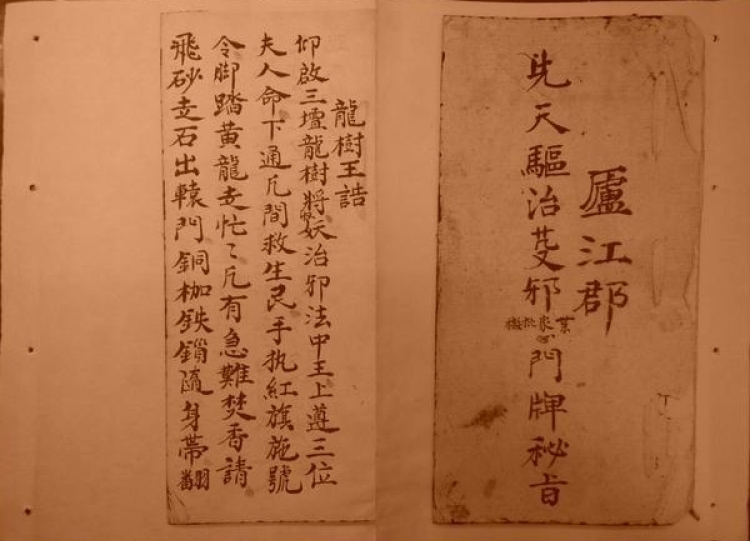 廬江郡
先天驅治芟邪門牌秘旨
龍樹王誥
仰啟三壇龍樹將妖治邪法中王上遵三位
夫人命下通凡間救生民手执紅旗施號
令脚踏黃龍走忙〻凡有急難焚香請
飛砂走石出轅門銅枷鉄鎖隨身帶翻